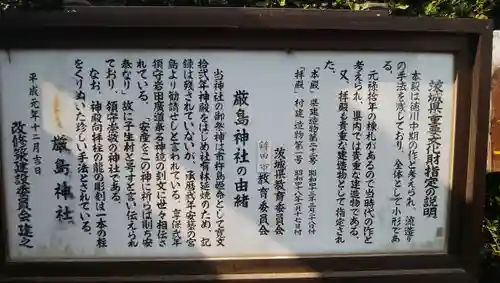 茨城県重要文化財指定の説明
本殿は徳川中期の作と考えられ、流造り
の手法を残しており、全体として小形であ
る。
元禄拾年の棟札があるので当時代の作と
考えられ、県内では貴重な建造物である。
又、拝殿も貴重な建造物として指定され
た。
「本殿」県建造物第二十二号
「拝殿」村建造物第一号
茨城県教育委員会
鉾田市教育委員会
厳島神社の由緒
当神社の御祭神は市杵島姫命として寛文
拾弐年神殿をはじめ社宥林延焼のため、記
録は残されていないが、承暦弐年安芸の宮
島より勧請せしと言われている。享保弐年
領守岩田廣道承る神鏡の刻文に世々相傳さ
れている。「安産をこの神に祈らば則ち安
泰なり」故に下生村と号すと言い伝えられ
ており、領守崇敬の神社である。
なお、神殿向拝柱の龍の彫刻は一本の柱
をくりぬいた珍しい手法とされている。
平成元年十二月吉日
厳島神社
改修築建設委員会建之